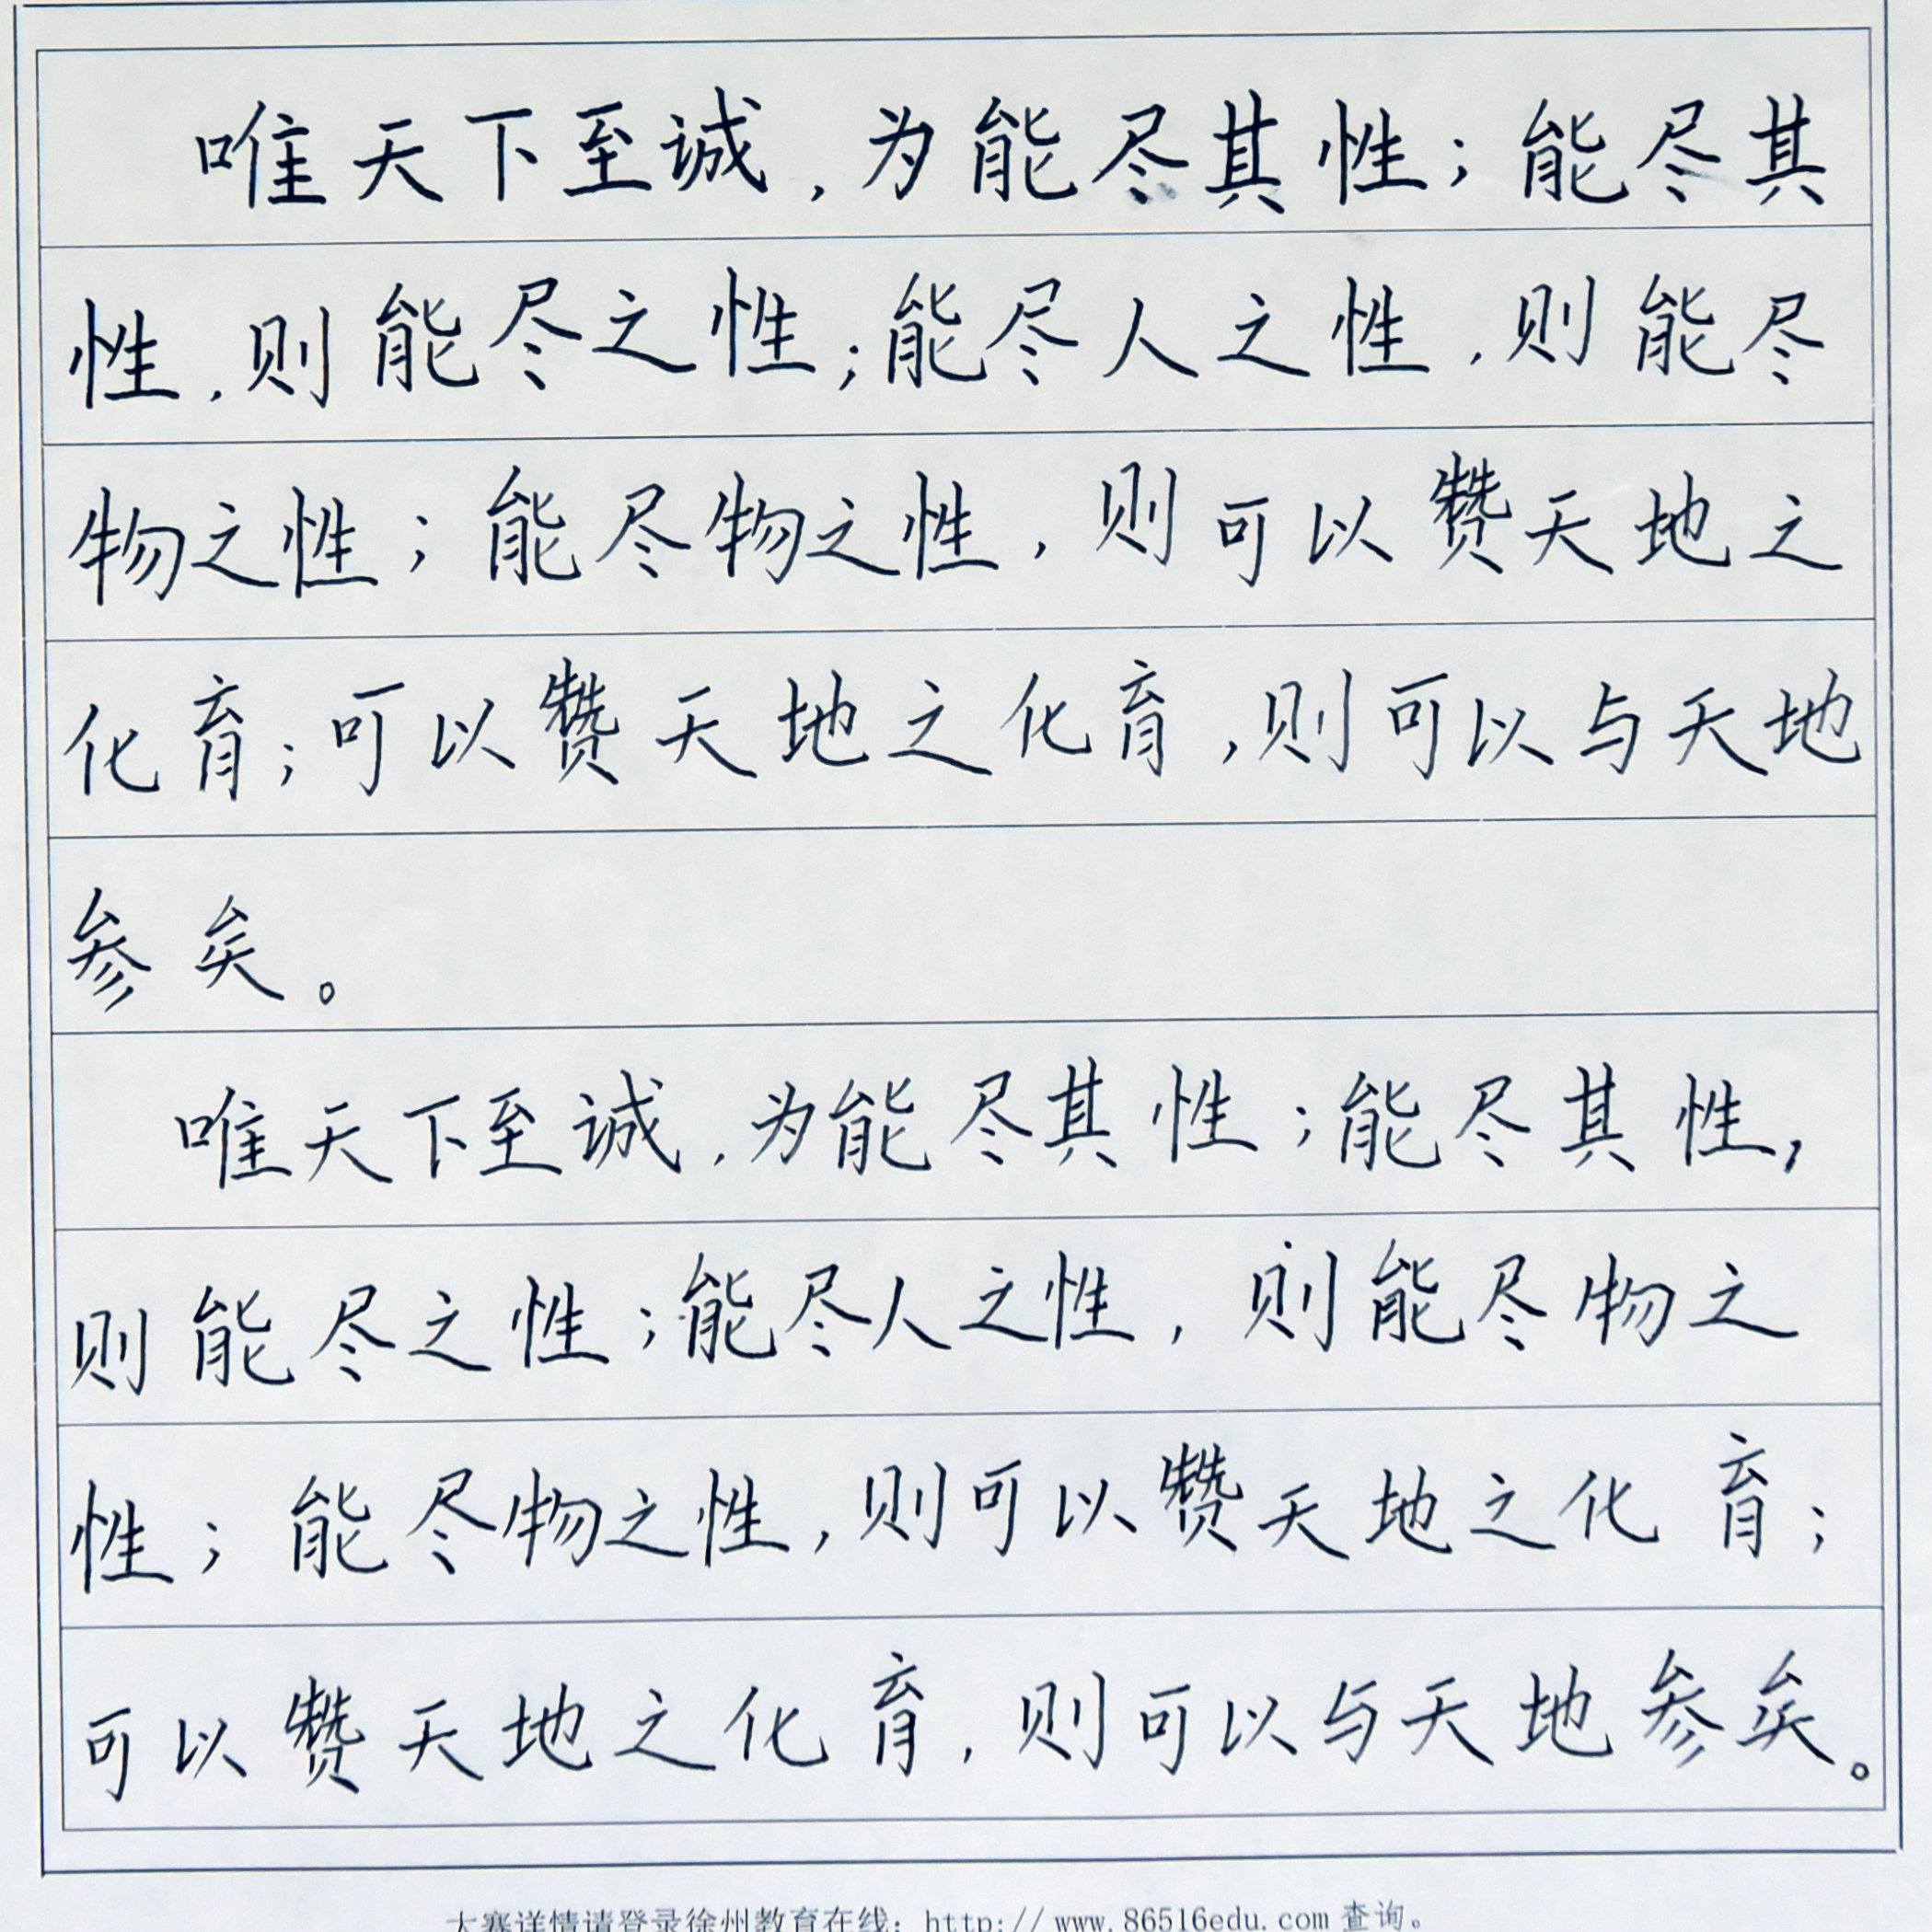 唯天下至诚,为能尽其性;能尽其
性,则能尽之性;能尽人之性,则能尽
物之性;能尽物之性,则可以赞天地之
化育;可以赞天地之化育,则可以与天地
参矣。
唯天下至诚,为能尽其性;能尽其性,
则能尽之性;能尽人之性,则能尽物之
性;能尽物之性,则可以赞天地之化育;
可以赞天地之化育,则可以与天地参矣。
大赛详情请登录徐州教育在线:http://www.86516edu.com查询。